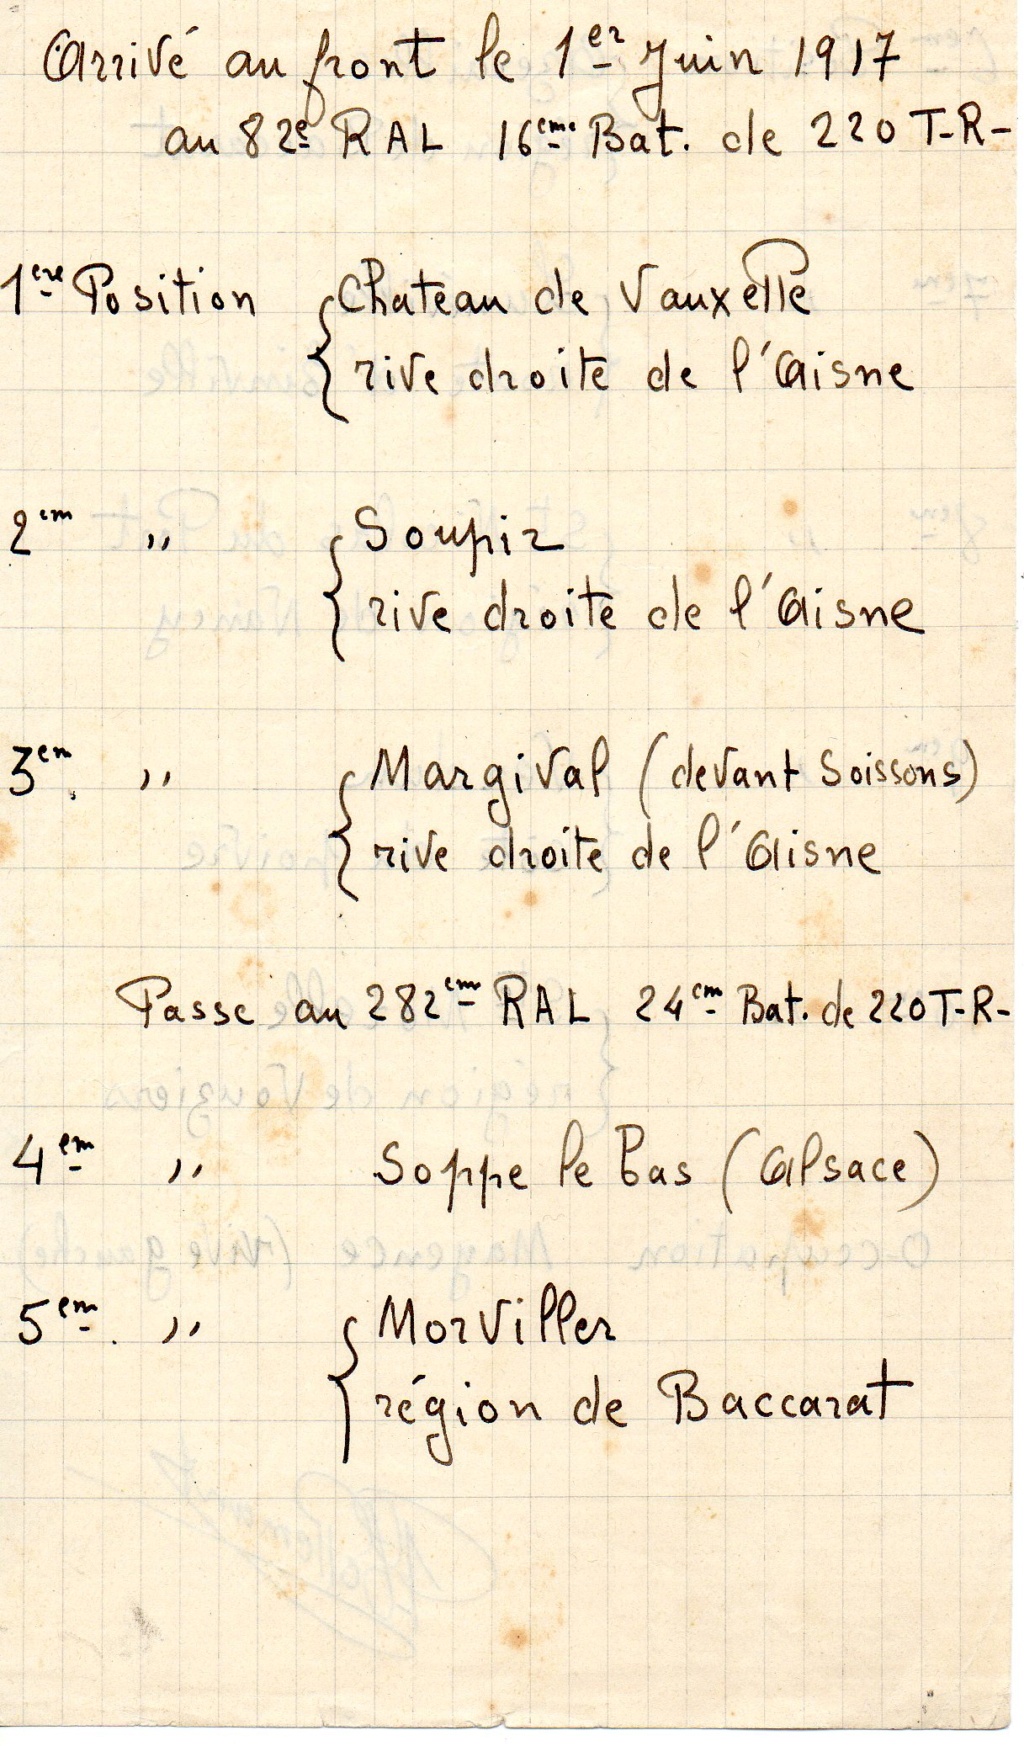 Arrivé au front le 1er Juin 1917
au 82e RAL 16eme Bat. de 220 T-R-
1ere Position { Chateau de Vauxelle
rive droite de l'Aisne
2em " { Soupir
rive droite de l'Aisne
3em " { Margival (devant Soissons)
rive droite de l'Aisne
Passe au 282em RAL 24em Bat. de 220 T-R-
4em " Soppe le Bas (Alsace)
5em " { Morviller
région de Baccarat